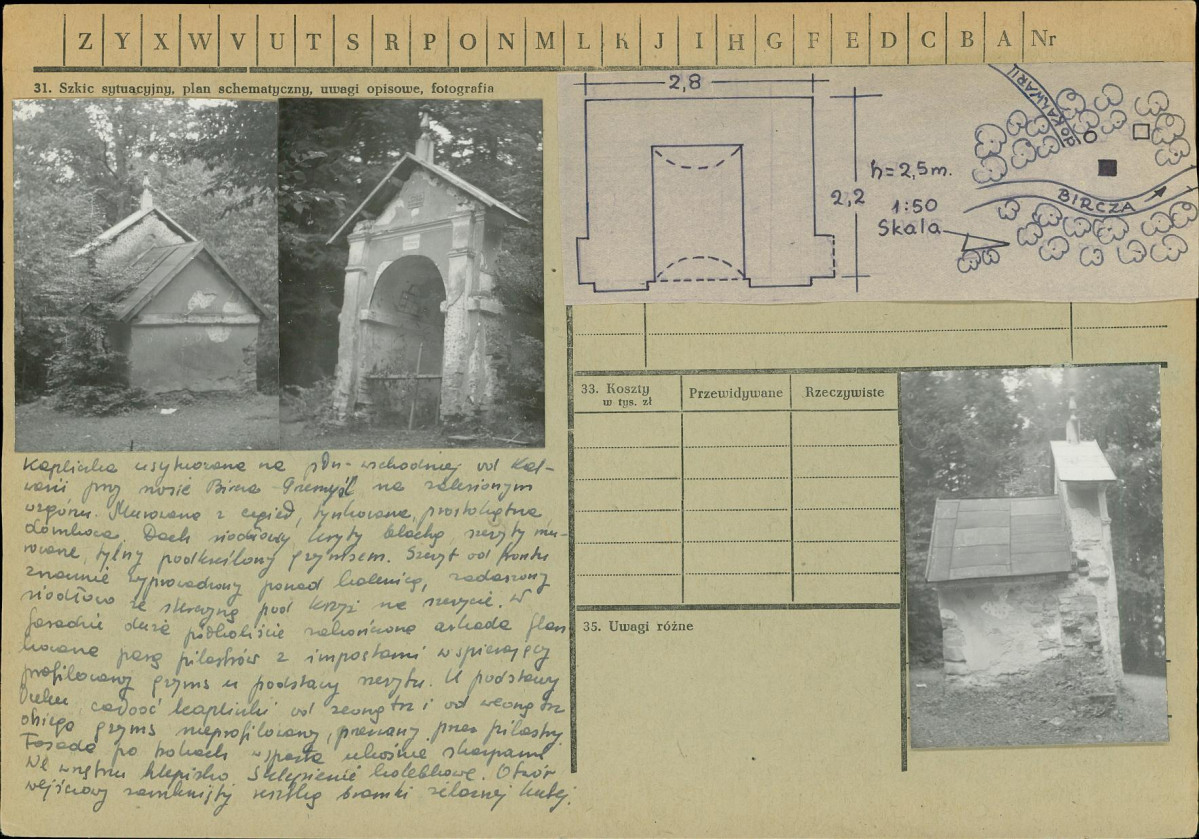 Z Y X W V U T S R P O N M L K J I H G F E D C B A Nr
31. Szkic sytuacyjny, plan schematyczny, uwagi opisowe, fotografia
2,8
2,2
h=2,5m.
1:50
Skala
DO KALWARII
BIRCZA
Kapliczka usytuowana na płn-wschodniej od Kal-
warii przy szosie Bircza-Przemyśl na zalesionym
wzgórzu. Murowana z cegieł, tynkowana, prostokątna
domkowa. Dach siodłowy kryty blachą, szczyty mu-
rowane, tylny podkreślony gzymsem. Szczyt od frontu
znacznie wyprowadzony ponad kalenicę, zadaszony
siodłowo ze skrzynią pod krzyż na szczycie. W
fasadzie duża półkoliście zakończona arkada flan-
kowana parą pilastrów z impostami wspierający
profilowany gzyms u podstawy szczytu. U podstawy
łuku, całość kapliczki od zewnątrz i od wewnątrz
obiega gzyms nieprofilowany, przerwany przez pilastry.
Fasada po bokach wsparta ukośnie skarpami
We wnętrzu klepisko. Sklepienie kolebkowe. Otwór
wejściowy zamknięty resztką bramki żelaznej kutej.
33. Koszty
w tys. zł
Przewidywane
Rzeczywiste
35. Uwagi różne